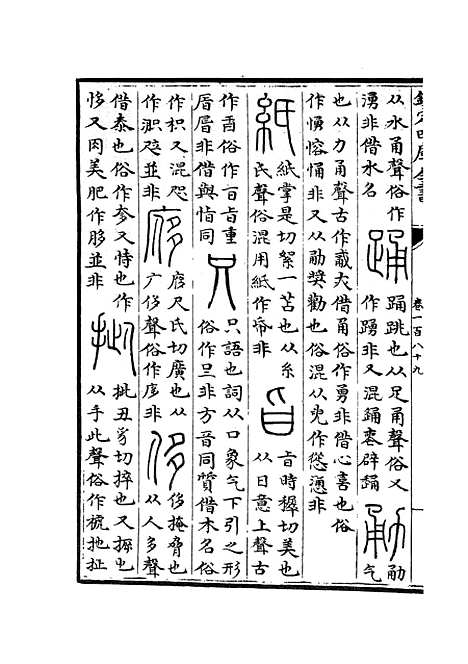 欽定四庫全書
卷一百八十九
从水甬聲俗作
湧非借水名
踊
踊跳也从足甬聲俗又
作踴非又混踊 辟踊
勈
勈气
也从力甬聲古作 借甬俗作勇非借心喜也俗
作 非又从勈奬勸也俗混从兔作慫 非
紙
紙掌是切絮一苫也从糸
氏聲俗混用紙作帋非
㫖
㫖時 切美也
从日意上聲古
作 俗作百㫖重
非借與恉同
只
只語也詞从口象气下引之形
俗作旦非方音同質借木名俗
作枳又混咫
作 並非
㢋
㢋尺氏切廣也从
广侈聲俗作 非
侈
侈掩脅也
从人多聲
借泰也俗作奓又恃也作
又肉美肥作 並非
批
批丑豸切捽也又 也
从手此聲俗作 扯